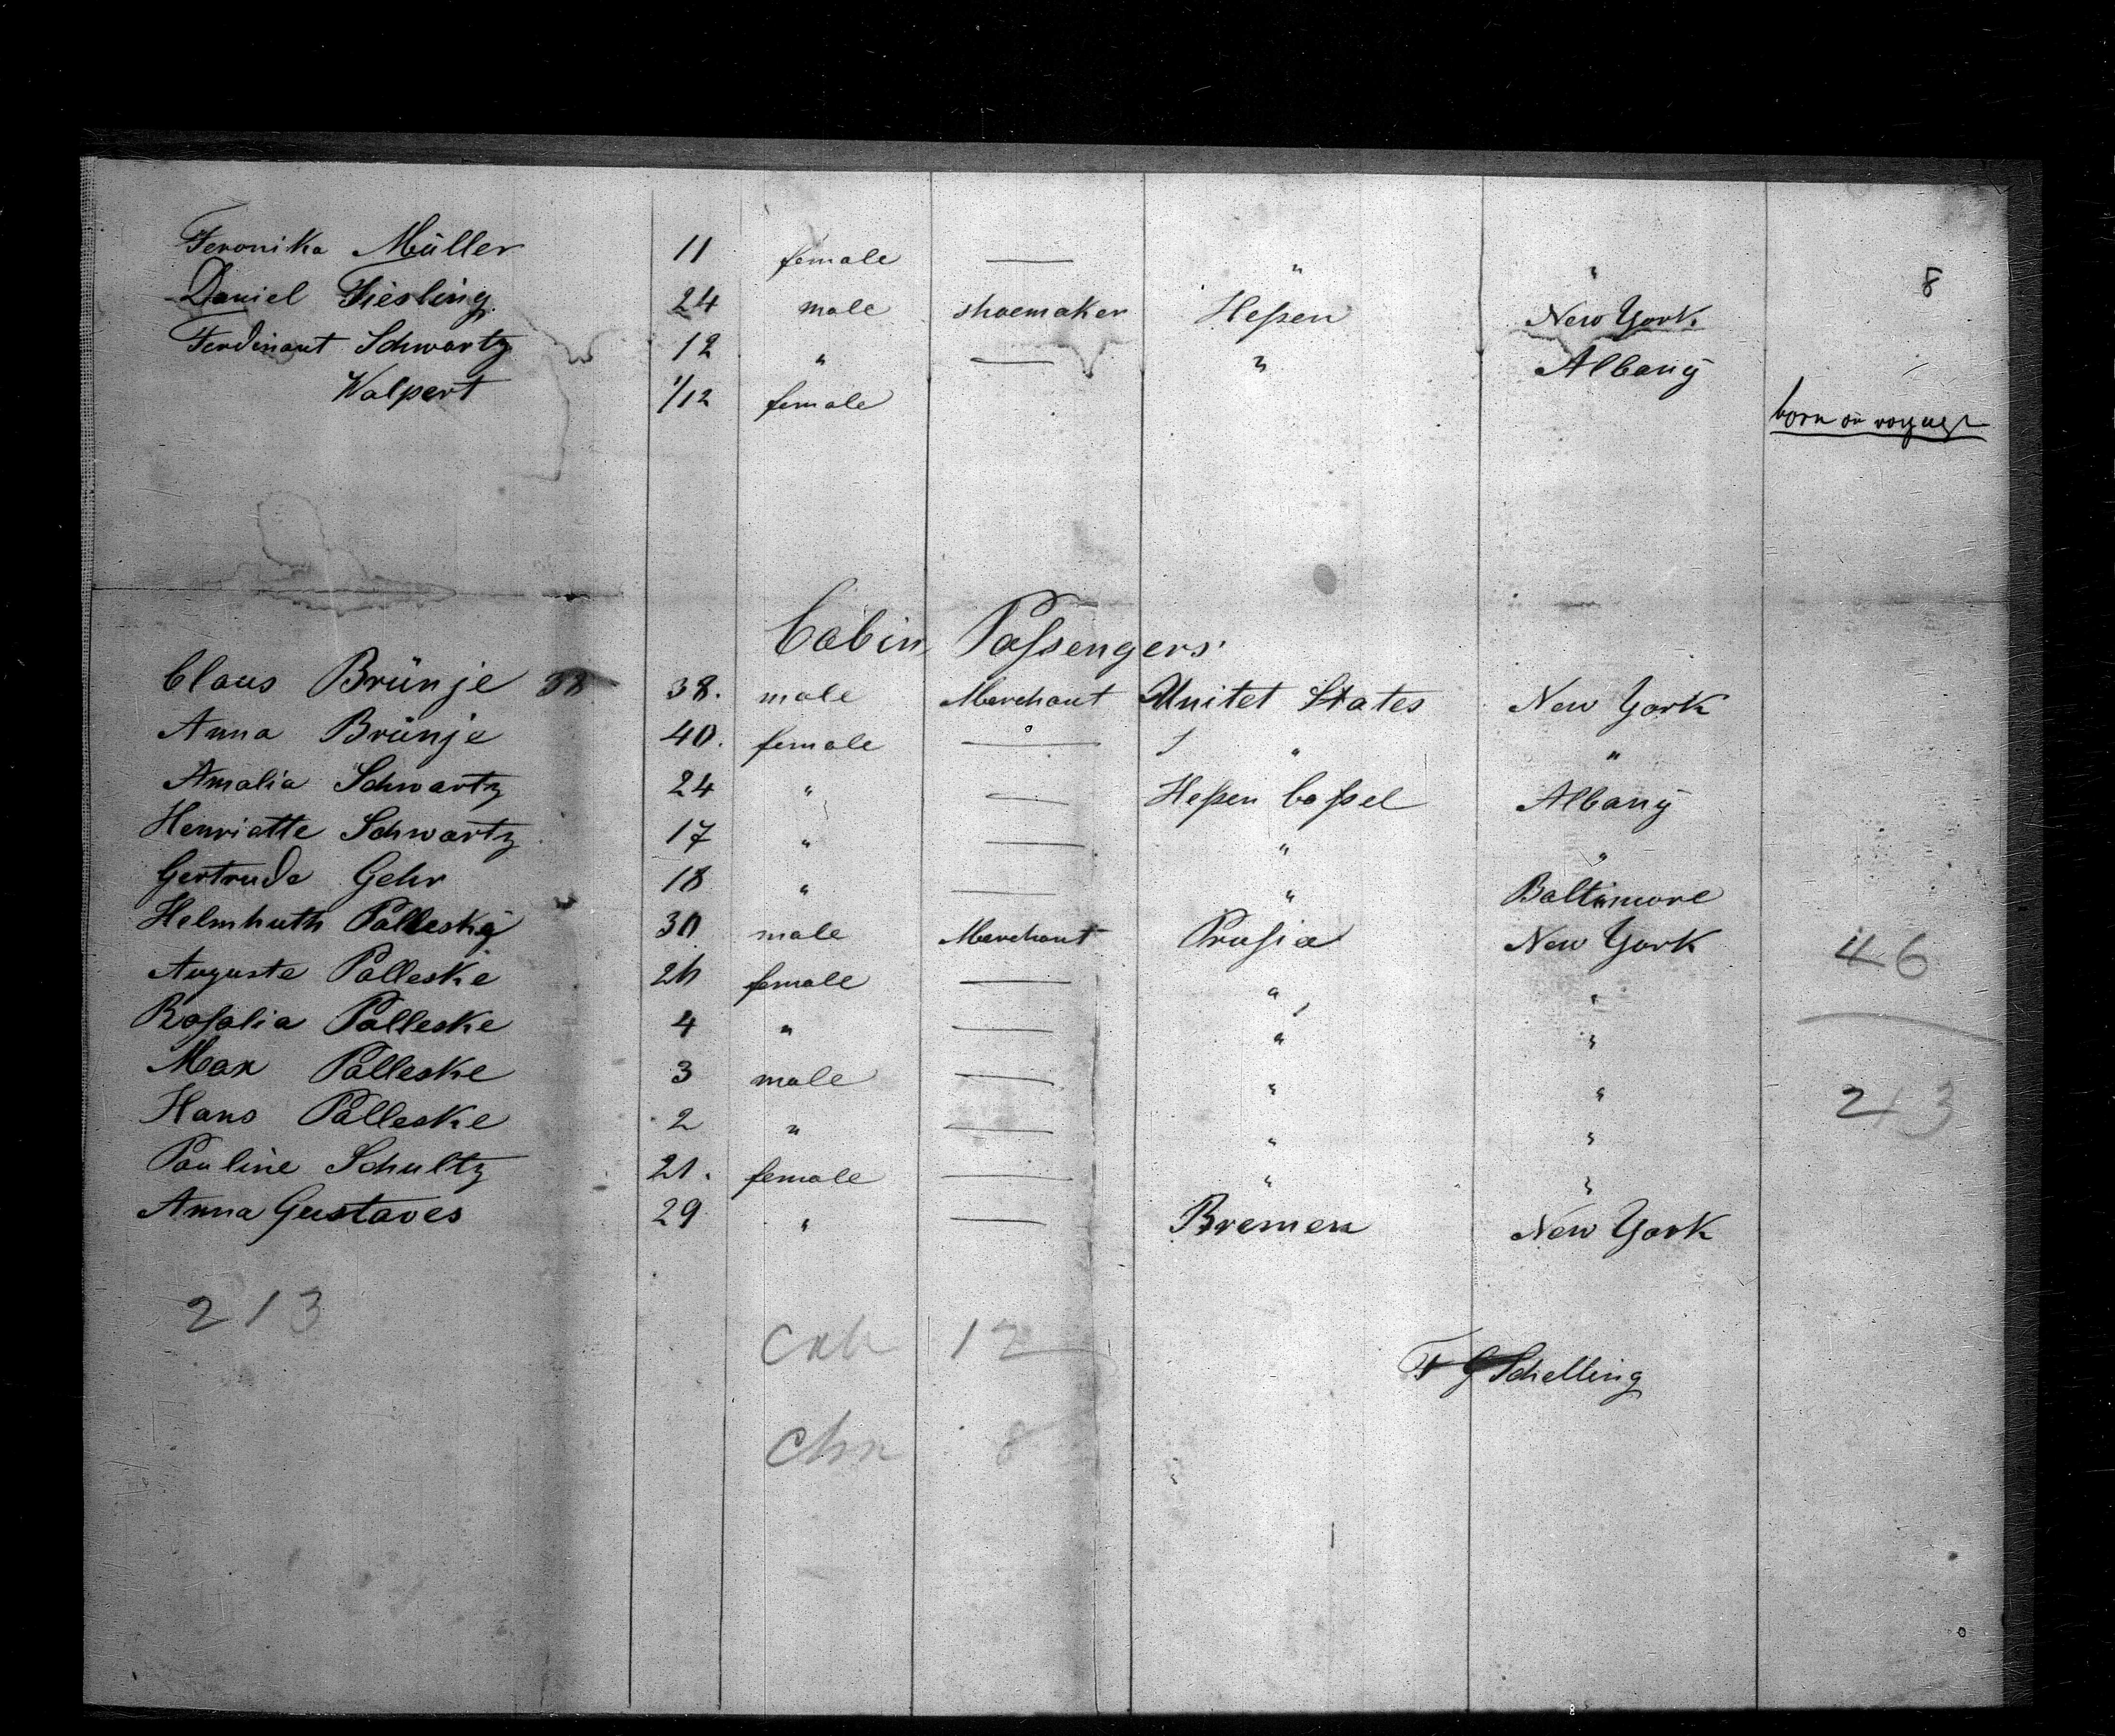 Feronika Müller 11 female — " " 8
Daniel Fiesling 24 male shoemaker Heßen New York
Ferdinant Schwartz 12 " — " Albany
Walpert 1/12 female born on voyage
Cabin Passengers
Claus Brünje 38 38. male Merchant Unitet States New York
Anna Brünje 40. female — " "
Amalia Schwartz 24 " — Heßen Caßel Albany
Henriette Schwartz 17 " — " "
Gertrude Gehr 18 " — " Baltimore
Helmhuth Palleský 30 male Merchant Prußia New York 46
Auguste Palleske female — " "
Roßalia Palleske 4 " — " "
Max Palleske 3 male — " " 213
Hans Palleske 2 " — " "
Pauline Schultz 21. female — " "
Anna Gustaves 29 " — Bremen New York
213
Cab 12
Schelling
Chn 8